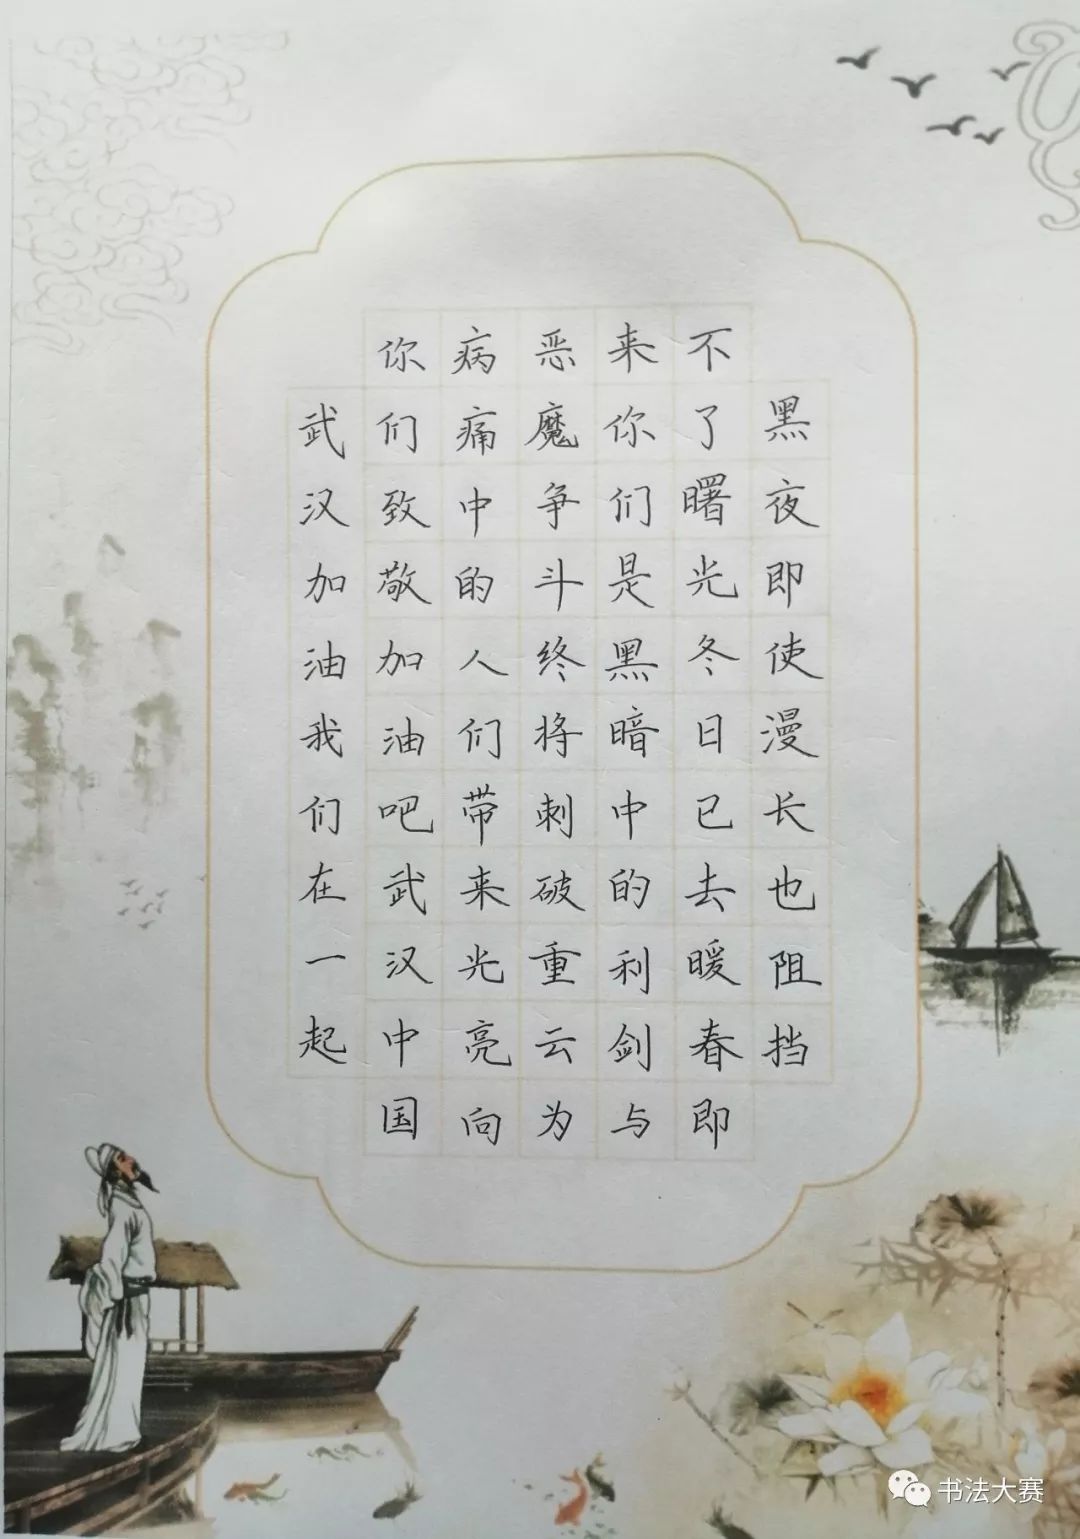 黑夜即使漫长也阻挡
不了曙光冬日已去暖春即
来你们是黑暗中的利剑与
恶魔争斗终将刺破重云为
病痛中的人们带来光亮向
你们致敬加油吧武汉中国
武汉加油我们在一起
书法大赛